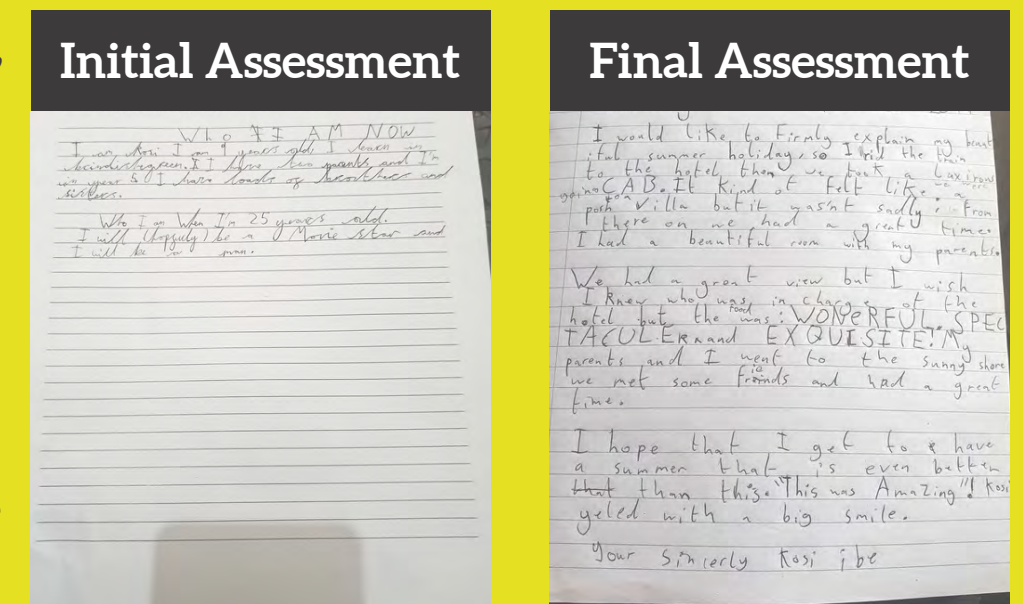 Initial Assessment
Who I AM NOW
I am Kosi I am 9 years old I learn in
I have two parents and I'm
in year 5 I have loads of brothers and
sisters.
Who I am When I'm 25 years old.
I will (hopfuly) be a Movie star and
I will be a man.
Final Assessment
I would like to firmly explain my beaut
iful summer holiday, so I rid the train
to the hotel then we took a Luxirous
CAB. It kind of felt like we were
going to a posh villa but it wasn't sadly; from
there on we had a great time.
I had a beautiful room with my parents.
We had a great view but I wish
I knew who was in charge of the
hotel but the food was: WONDERFUL, SPEC
TACULER and EXQUISITE! My
parents and I went to the sunny shore
we met some friends and had a great
time.
I hope that I get to have
a summer that is even better
that than this. "This was Amazing"! Kosi
yeled with a big smile.
Your Sincerly Kosi ibe